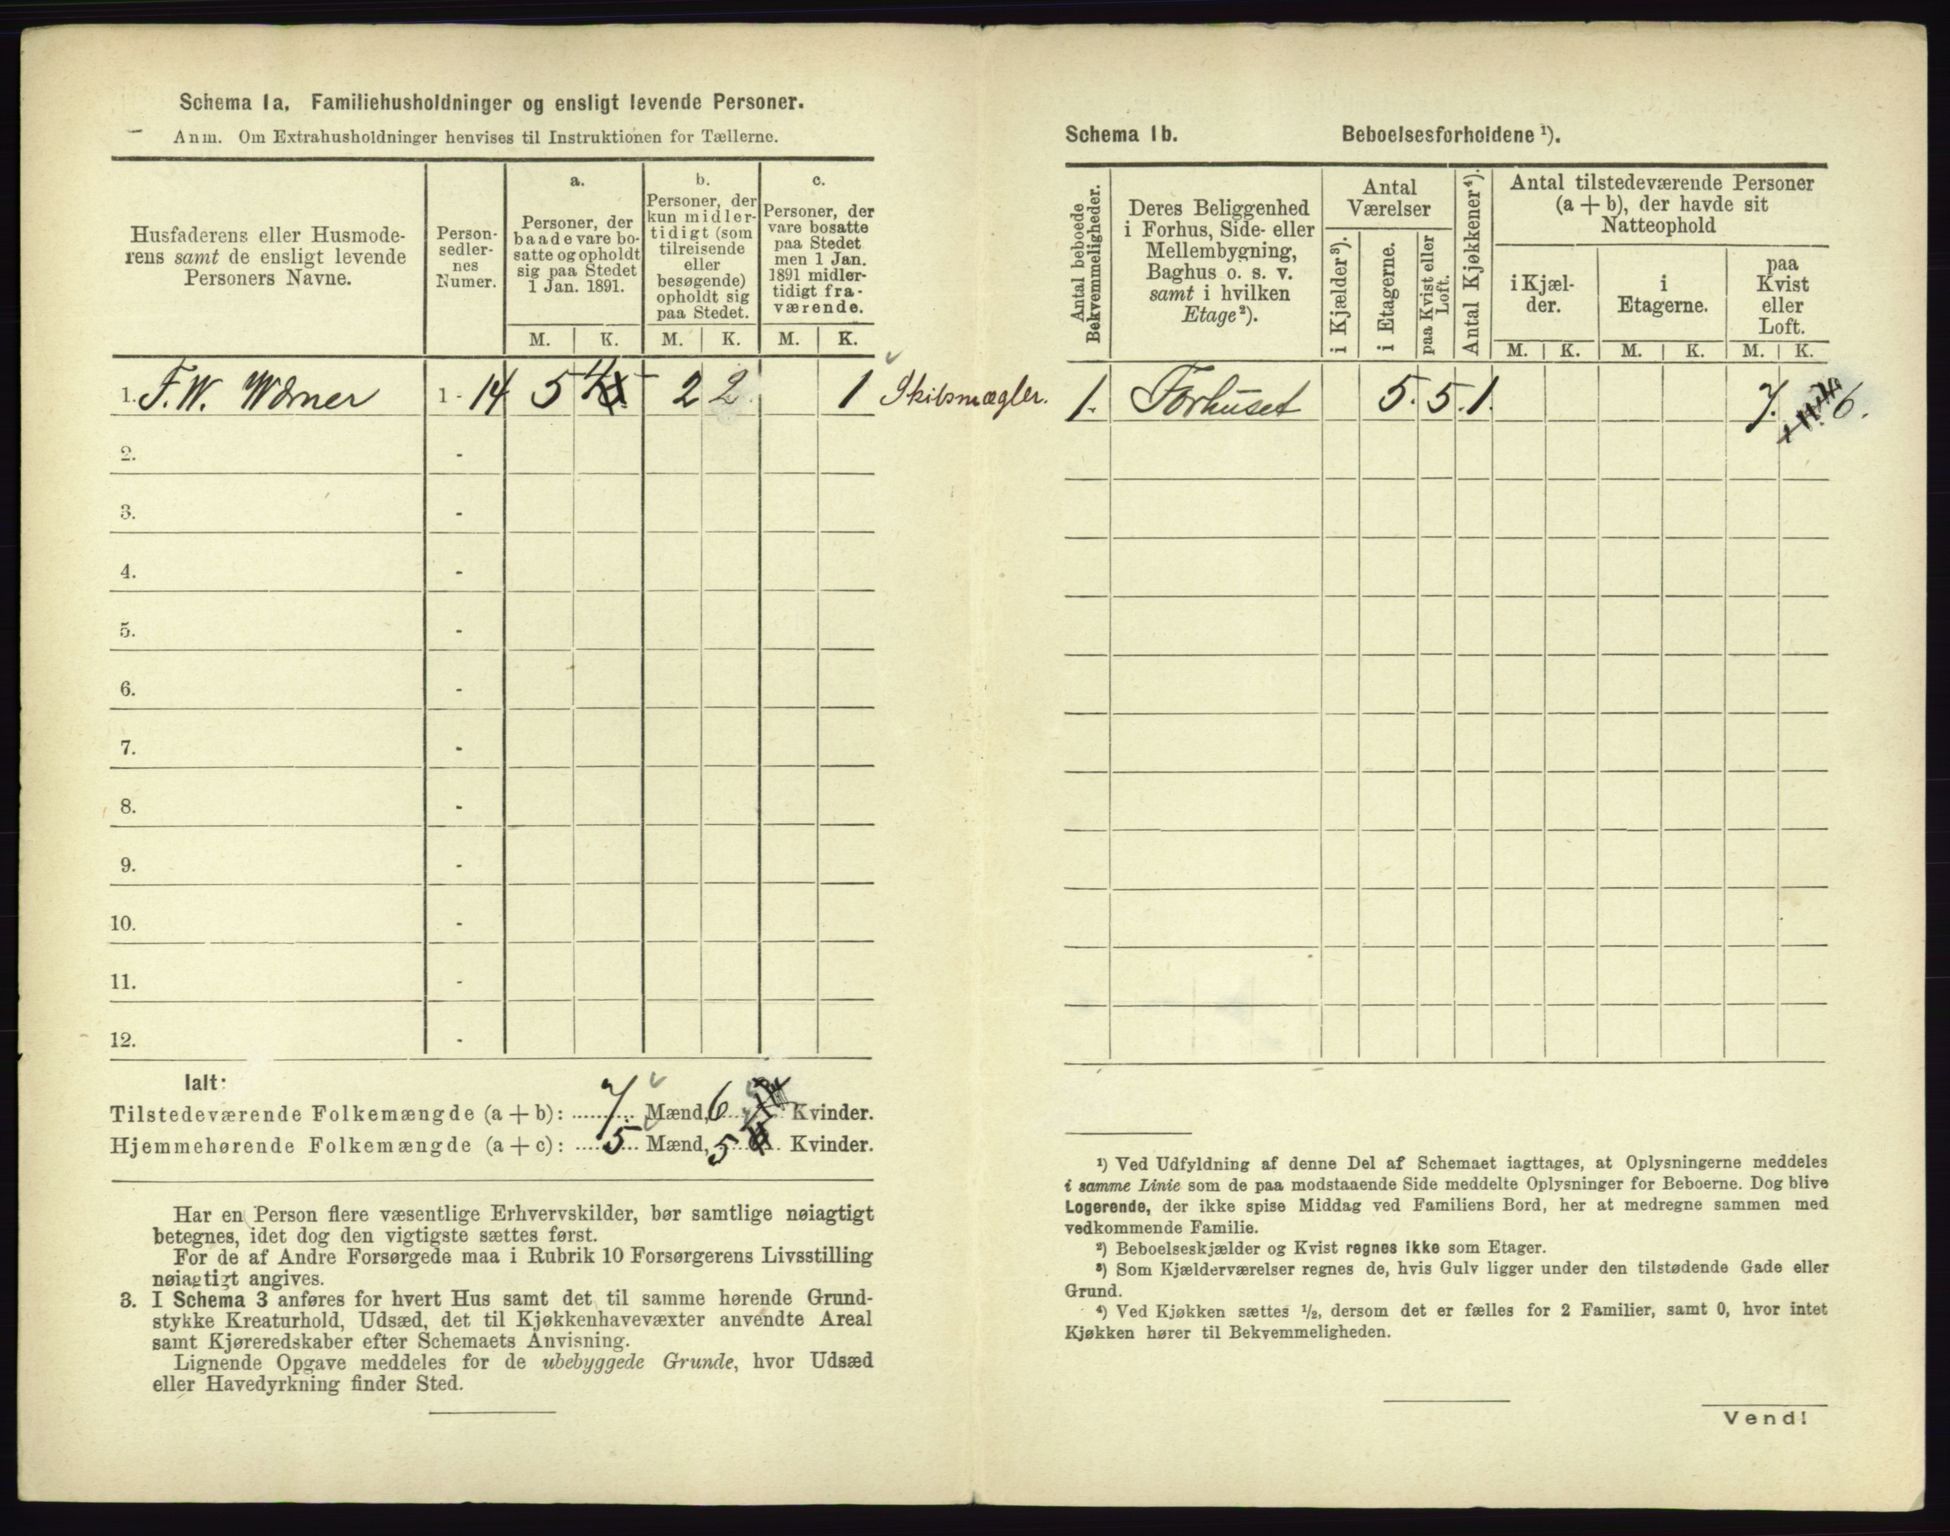 Schema 1a. Familiehusholdninger og ensligt levende Personer.
Anm. Om Extrahusholdninger henvises til Instruktionen for Tællerne.
Husfaderens eller Husmode-
rens samt de ensligt levende
Personers Navne.
Person-
sedler-
nes
Numer.
a.
Personer, der
baade vare bo-
satte og opholdt
sig paa Stedet
1 Jan. 1891.
b.
Personer, der
kun midler-
tidigt (som
tilreisende
eller
besøgende)
opholdt sig
paa Stedet.
c.
Personer, der
vare bosatte
paa Stedet
men 1 Jan.
1891 midler-
tidigt fra-
værende.
M. K. M. K. M. K.
1. F. W. Wörner 1 - 14 5 4 2 2 1 Skibsmægler.
2. -
3. -
4. -
5. -
6. -
7. -
8. -
9. -
10. -
11. -
12. -
Ialt:
Tilstedeværende Folkemængde (a + b): 7 Mænd, 6 Kvinder.
Hjemmehørende Folkemængde (a + c): 5 Mænd, 5 Kvinder.
Har en Person flere væsentlige Erhvervskilder, bør samtlige nøiagtigt
betegnes, idet dog den vigtigste sættes først.
For de af Andre Forsørgede maa i Rubrik 10 Forsørgerens Livsstilling
nøiagtigt angives.
3. I Schema 3 anføres for hvert Hus samt det til samme hørende Grund-
stykke Kreaturhold, Udsæd, det til Kjøkkenhavevæxter anvendte Areal
samt Kjøreredskaber efter Schemaets Anvisning.
Lignende Opgave meddeles for de ubebyggede Grunde, hvor Udsæd
eller Havedyrkning finder Sted.
Schema 1b. Beboelsesforholdene ¹).
Antal beboede
Bekvemmeligheder.
Deres Beliggenhed
i Forhus, Side- eller
Mellembygning,
Baghus o. s. v.
samt i hvilken
Etage²).
Antal
Værelser
i Kjælder³).
i Etagerne.
paa Kvist eller
Loft.
Antal Kjøkkener⁴).
Antal tilstedeværende Personer
(a + b), der havde sit
Natteophold
i Kjæl-
der.
i
Etagerne.
paa
Kvist
eller
Loft.
M. K. M. K. M. K.
1. Forhuset 5. 5. 1. 7. 6.
¹) Ved Udfyldning af denne Del af Schemaet iagttages, at Oplysningerne meddeles
i samme Linie som de paa modstaaende Side meddelte Oplysninger for Beboerne. Dog blive
Logerende, der ikke spise Middag ved Familiens Bord, her at medregne sammen med
vedkommende Familie.
²) Beboelseskjælder og Kvist regnes ikke som Etager.
³) Som Kjælderværelser regnes de, hvis Gulv ligger under den tilstødende Gade eller
Grund.
⁴) Ved Kjøkken sættes ½, dersom det er fælles for 2 Familier, samt 0, hvor intet
Kjøkken hører til Bekvemmeligheden.
Vend!